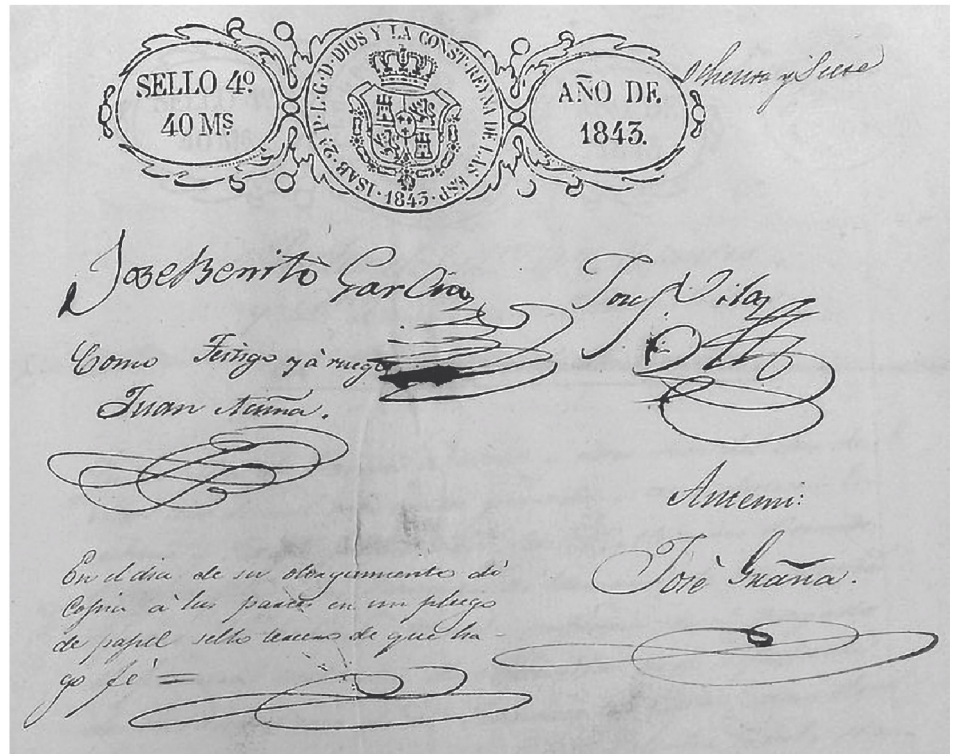 SELLO 4º
40 Mˢ
ISAB. 2ª P. L. G. D. DIOS Y LA CONST. REYNA DE LAS ESP.
1843.
AÑO DE
1843.
Ochenta y Siete
Jose Benito Garcia
Jose Vila
Como Testigo y à ruego
Juan Acuña.
Antemi:
Josè Graña.
En el dia de su otorgamiento dì
Copia à las partes en un pliego
de papel sello tercero de que ha-
go fè =